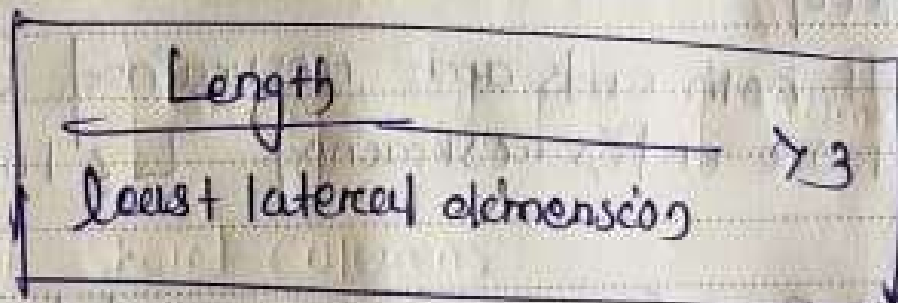 Length
least lateral dimension > 3